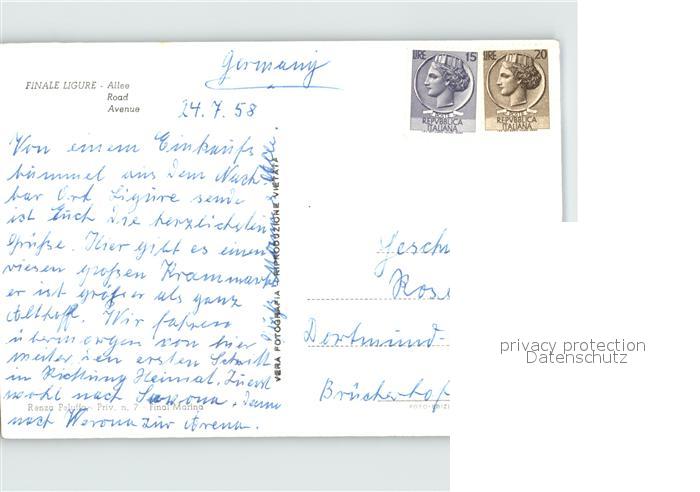 Germany
FINALE LIGURE - Allee
Road
Avenue
24.7.58
LIRE 15
POSTE
REPVBBLICA
ITALIANA
LIRE 20
POSTE
REPVBBLICA
ITALIANA
Von einem Einkaufs
bummel aus dem Nach-
bar Ort Ligure sende
ist Euch die herzlichsten
Grüße. Hier gibt es einen
riesen großen Krammarkt
er ist größer als ganz
Althoff. Wir fahren
übermorgen von hier
weiter den ersten Schritt
in Richtung Heimat. Zuerst
wohl nach Savona, dann
nach Werona zur Arena.
VERA FOTOGRAFIA - RIPRODUZIONE VIETATA
Gesch
Rose
Dortmund-
Brücherhof
Renzo Peluffo - Priv. n. 7 - Final Marina
privacy protection
Datenschutz